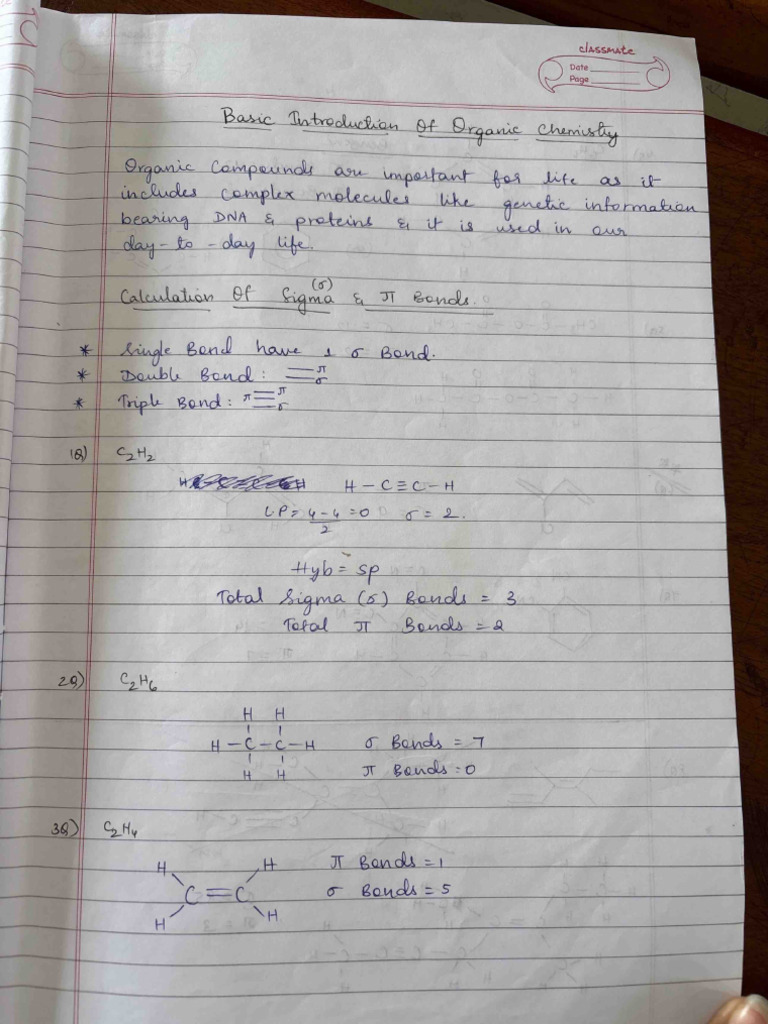 classmate
Date
Page
Basic Introduction Of Organic Chemistry
Organic Compounds are important for life as it
includes complex molecules like genetic information
bearing DNA & proteins & it is used in our
day-to-day life.
Calculation Of Sigma (σ) & π Bonds.
* Single Bond have 1 σ Bond.
* Double Bond: = π σ
* Triple Bond: π ≡ π σ
1Q) C₂H₂
H H H – C ≡ C – H
L.P = 4-4/2 = 0 σ = 2.
Hyb = sp
Total Sigma (σ) Bonds = 3
Total π Bonds = 2
2Q) C₂H₆
H H
H – C – C – H σ Bonds = 7
H H π Bonds = 0
3Q) C₂H₄
H H π Bonds = 1
C = C σ Bonds = 5
H H